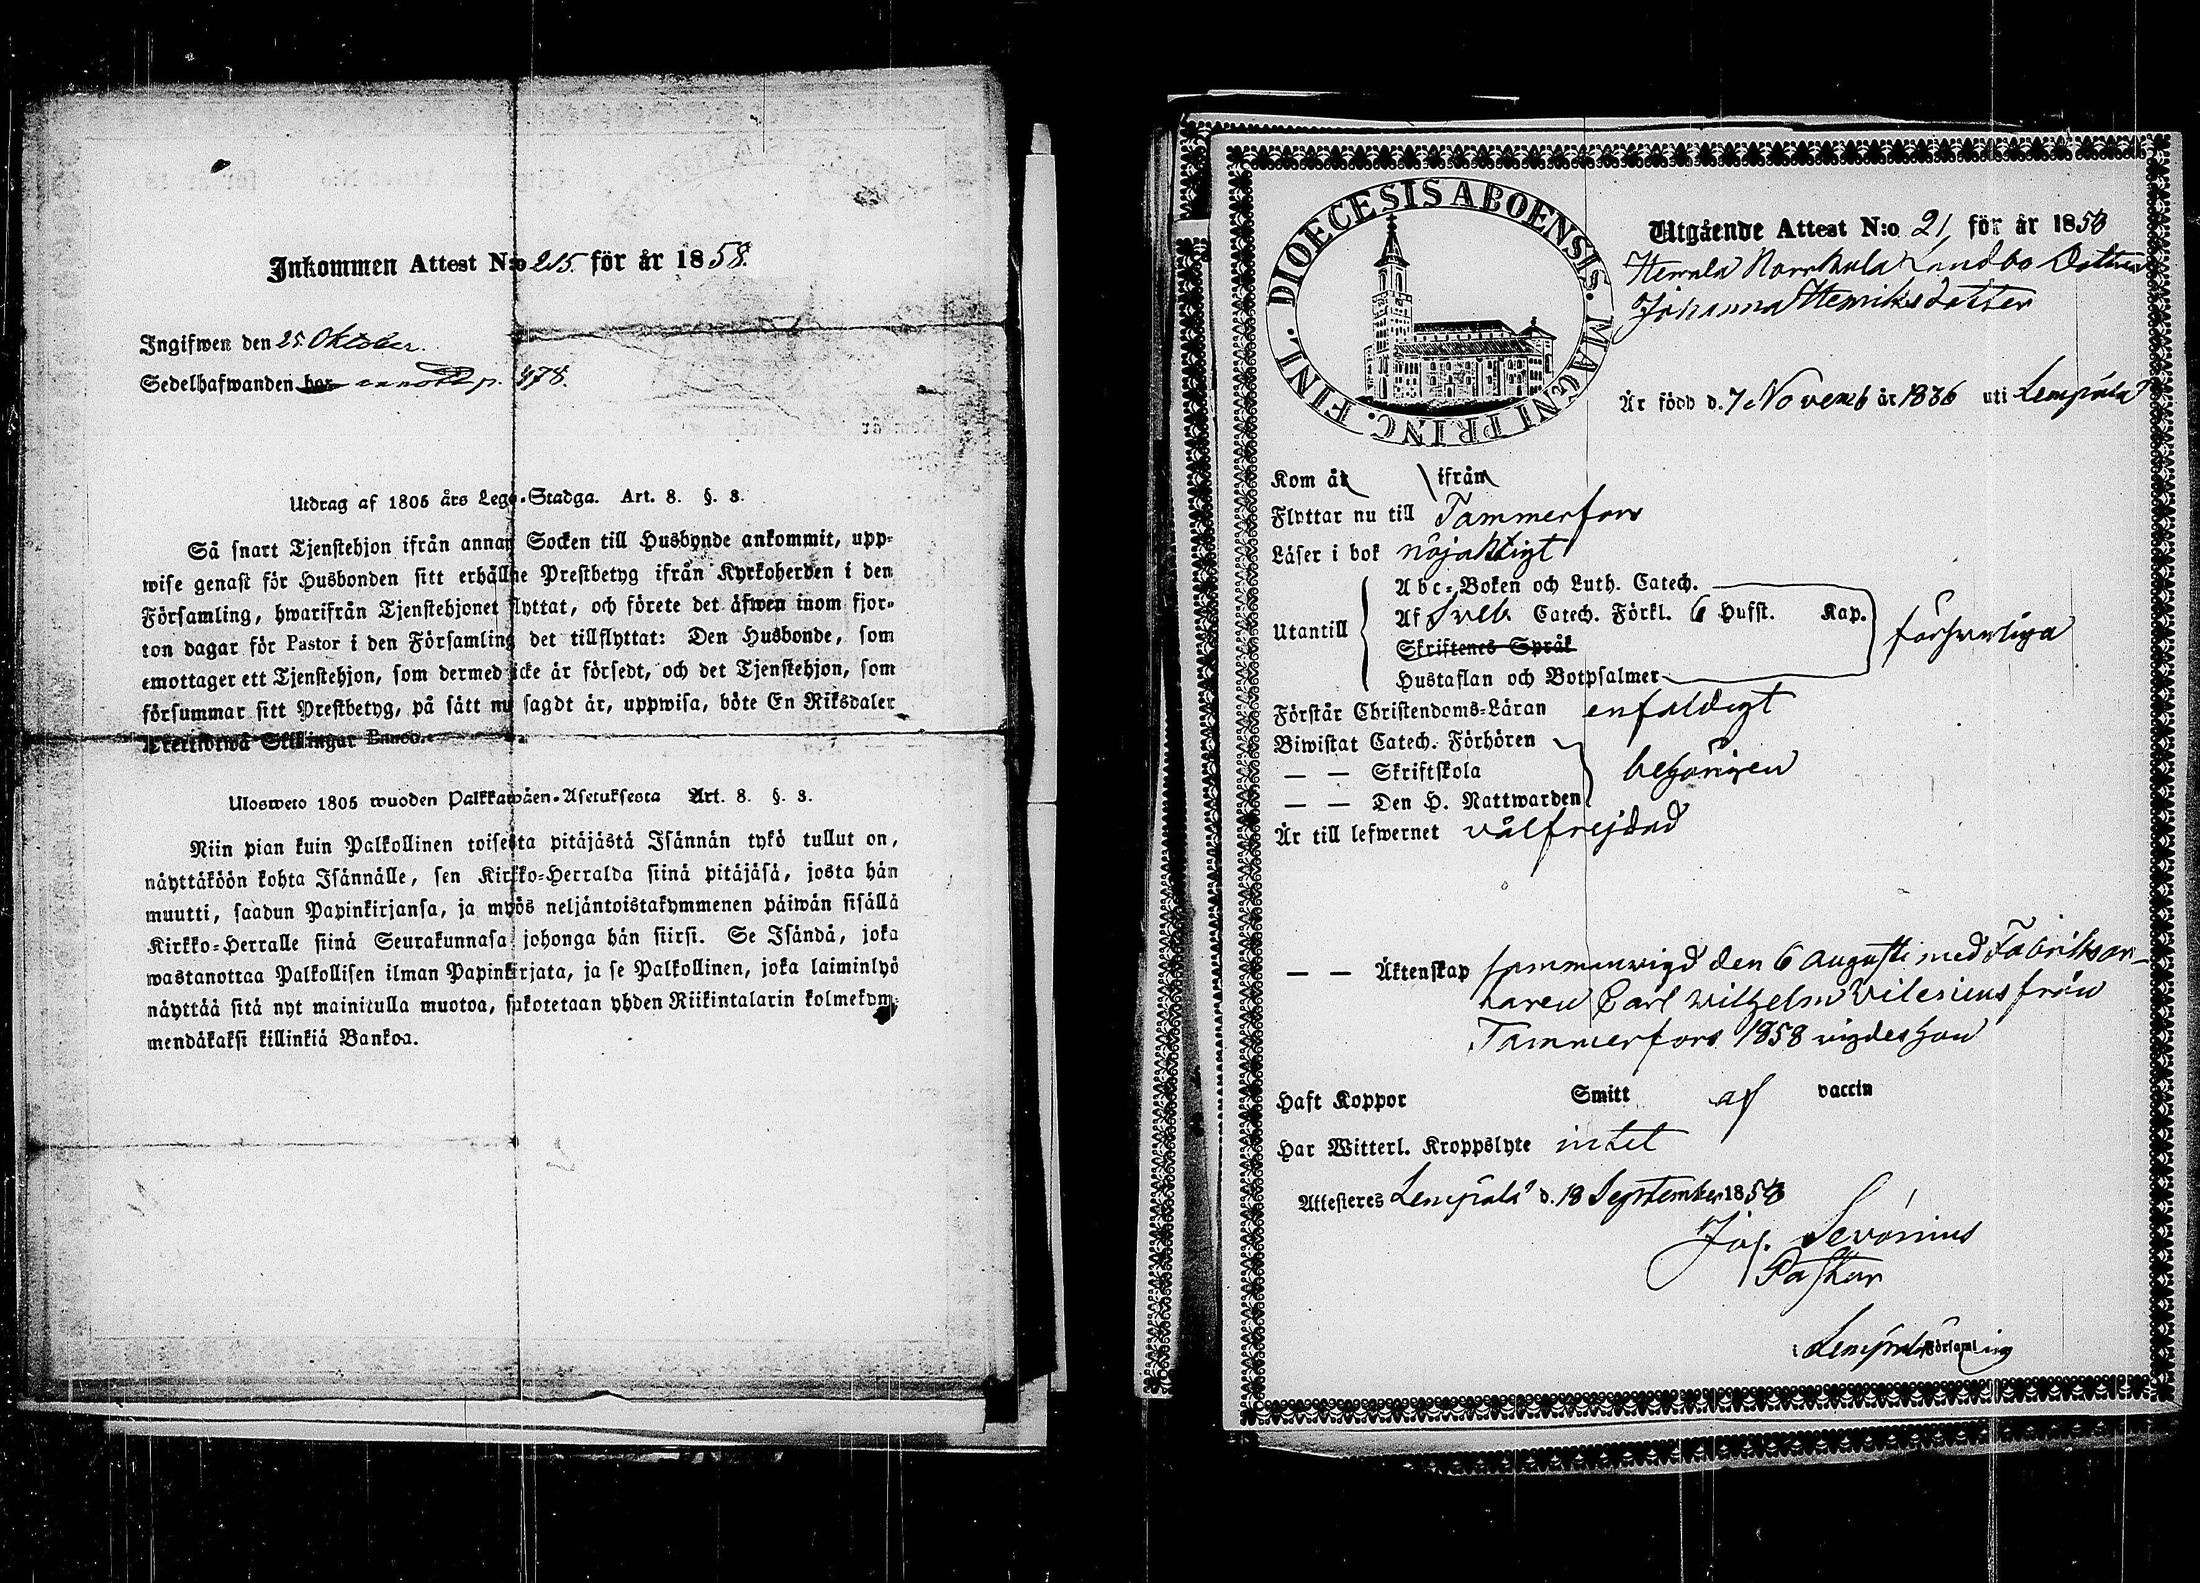 Inkommen Attest N:o 215. för år 1858.
Ingifwen den 25 Oktober.
Sedelhafwanden bor annoterad p. 478.
Utdrag af 1805 års Lego-Stadga. Art. 8. §. 3.
Så snart Tjenstehjon ifrån annan Socken till Husbonde ankommit, upp-
wise genast för Husbonden sitt erhållne Prestbetyg ifrån Kyrkoherden i den
Församling, hwarifrån Tjenstehjonet flyttat, och förete det äfwen inom fjor-
ton dagar för Pastor i den Församling det tillflyttat: Den Husbonde, som
emottager ett Tjenstehjon, som dermed icke är försedt, och det Tjenstehjon, som
försummar sitt Prestbetyg, på sätt nu sagdt är, uppwisa, böte En Riksdaler
Trettiotwå Skillingar Banco.
Ulosweto 1805 wuoden Palkkawäen-Asetuksesta Art. 8. §. 3.
Niin pian kuin Palkollinen toisesta pitäjästä Isännän tykö tullut on,
näyttäköön kohta Isännälle, sen Kirkko-Herralda siinä pitäjäsä, josta hän
muutti, saadun Papinkirjansa, ja myös neljäntoistakymmenen päiwän sisällä
Kirkko-Herralle siinä Seurakunnasa johonga hän siirsi. Se Isändä, joka
wastanottaa Palkollisen ilman Papinkirjata, ja se Palkollinen, joka laiminlyö
näyttää sitä nyt mainitulla muotoa, sakotetaan yhden Riikintalarin kolmekym-
mendäkaksi killinkiä Bankoa.
DIOECESIS ABOENSIS. MAGNI PRINC. FINL.
Utgående Attest N:o 21 för år 1858
Herrala Norrkula Landbo Dottren
Johanna Henriksdotter
Är född d. 7 Novemb år 1836 uti Lempälä
Kom år ifrån
Flyttar nu till Tammerfors
Läser i bok nöjaktigt
Abc-Boken och Luth. Catech.
Utantill Af Sveb. Catech. Förkl. 6 Hufst. Kap. försvarliga
Skriftenes Språk
Hustaflan och Botpsalmer
Förstår Christendoms-Läran enfaldigt
Biwistat Catech. Förhören
— — Skriftskola behörigen
— — Den H. Nattwarden
Är till lefwernet välfrejdad
— — Äktenskap sammanvigd den 6 augusti med Fabriksar-
karen Carl Wilhelm Vilenius från
Tammerfors 1858 vigdes hon
Haft Koppor Smitt af vaccin
Har Witterl. Kroppslyte intet
Attesteres Lempälä d. 18 September 1858
Jos. Sevonius
Pastor
i Lempälä Församling